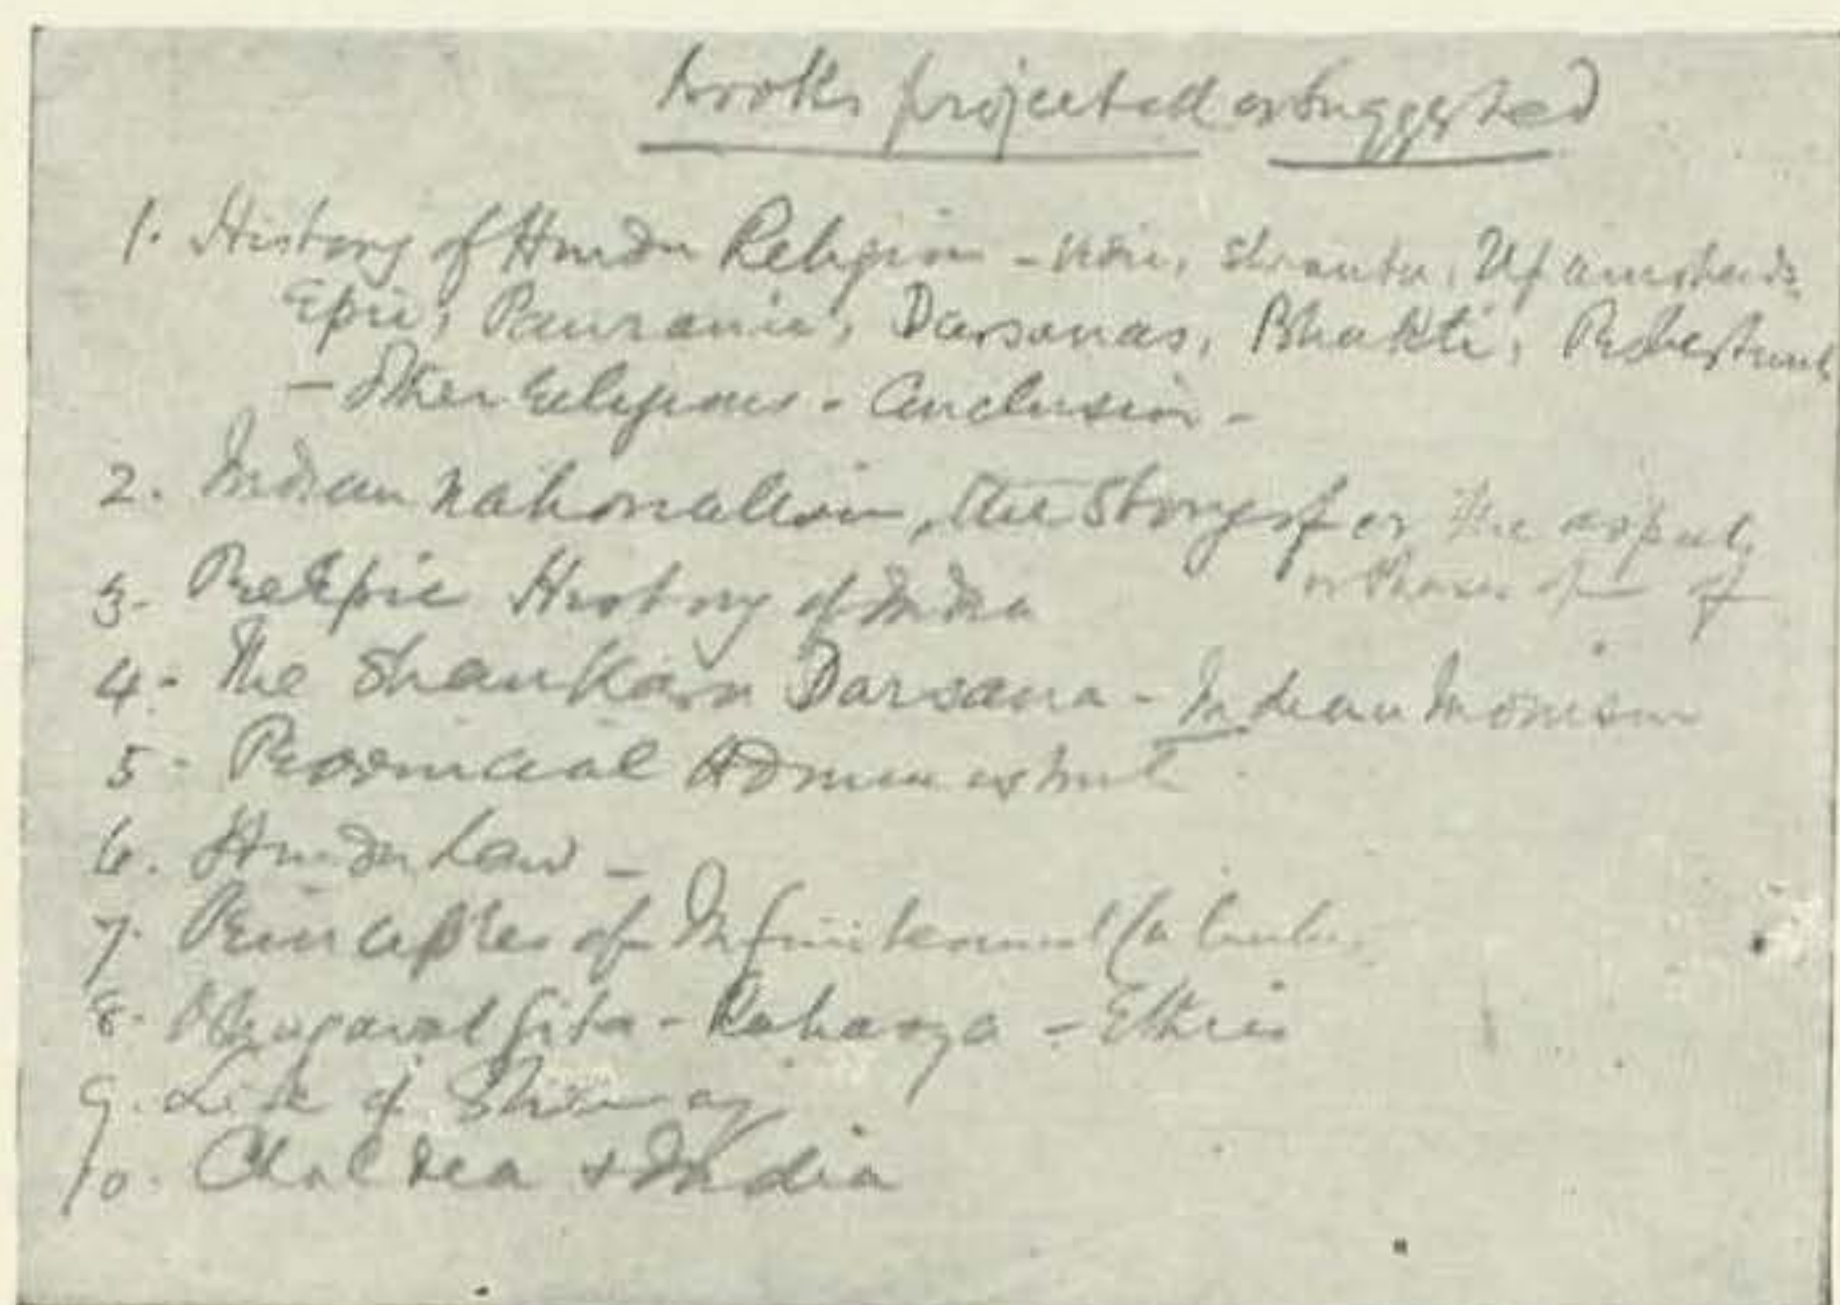 books projected or suggested
1. History of Hindu Religion - Vedic, Shrauta, Upanishads,
Epic, Pauranic, Darsanas, Bhakti,
- Other religions - Conclusion -
2. Indian nationalism, the Story of or the aspects
or Phases of — of —
3- PreEpic History of India
4- The Shankara Darsana - Indian Monism
5- Provincial Administrat
6. Hindu Law -
7. Principles of Infinitesimal Calculus
8- Bhagavad Gita - Rahasya - Ethics
9. Life of Shivaji
10. Chaldea & India